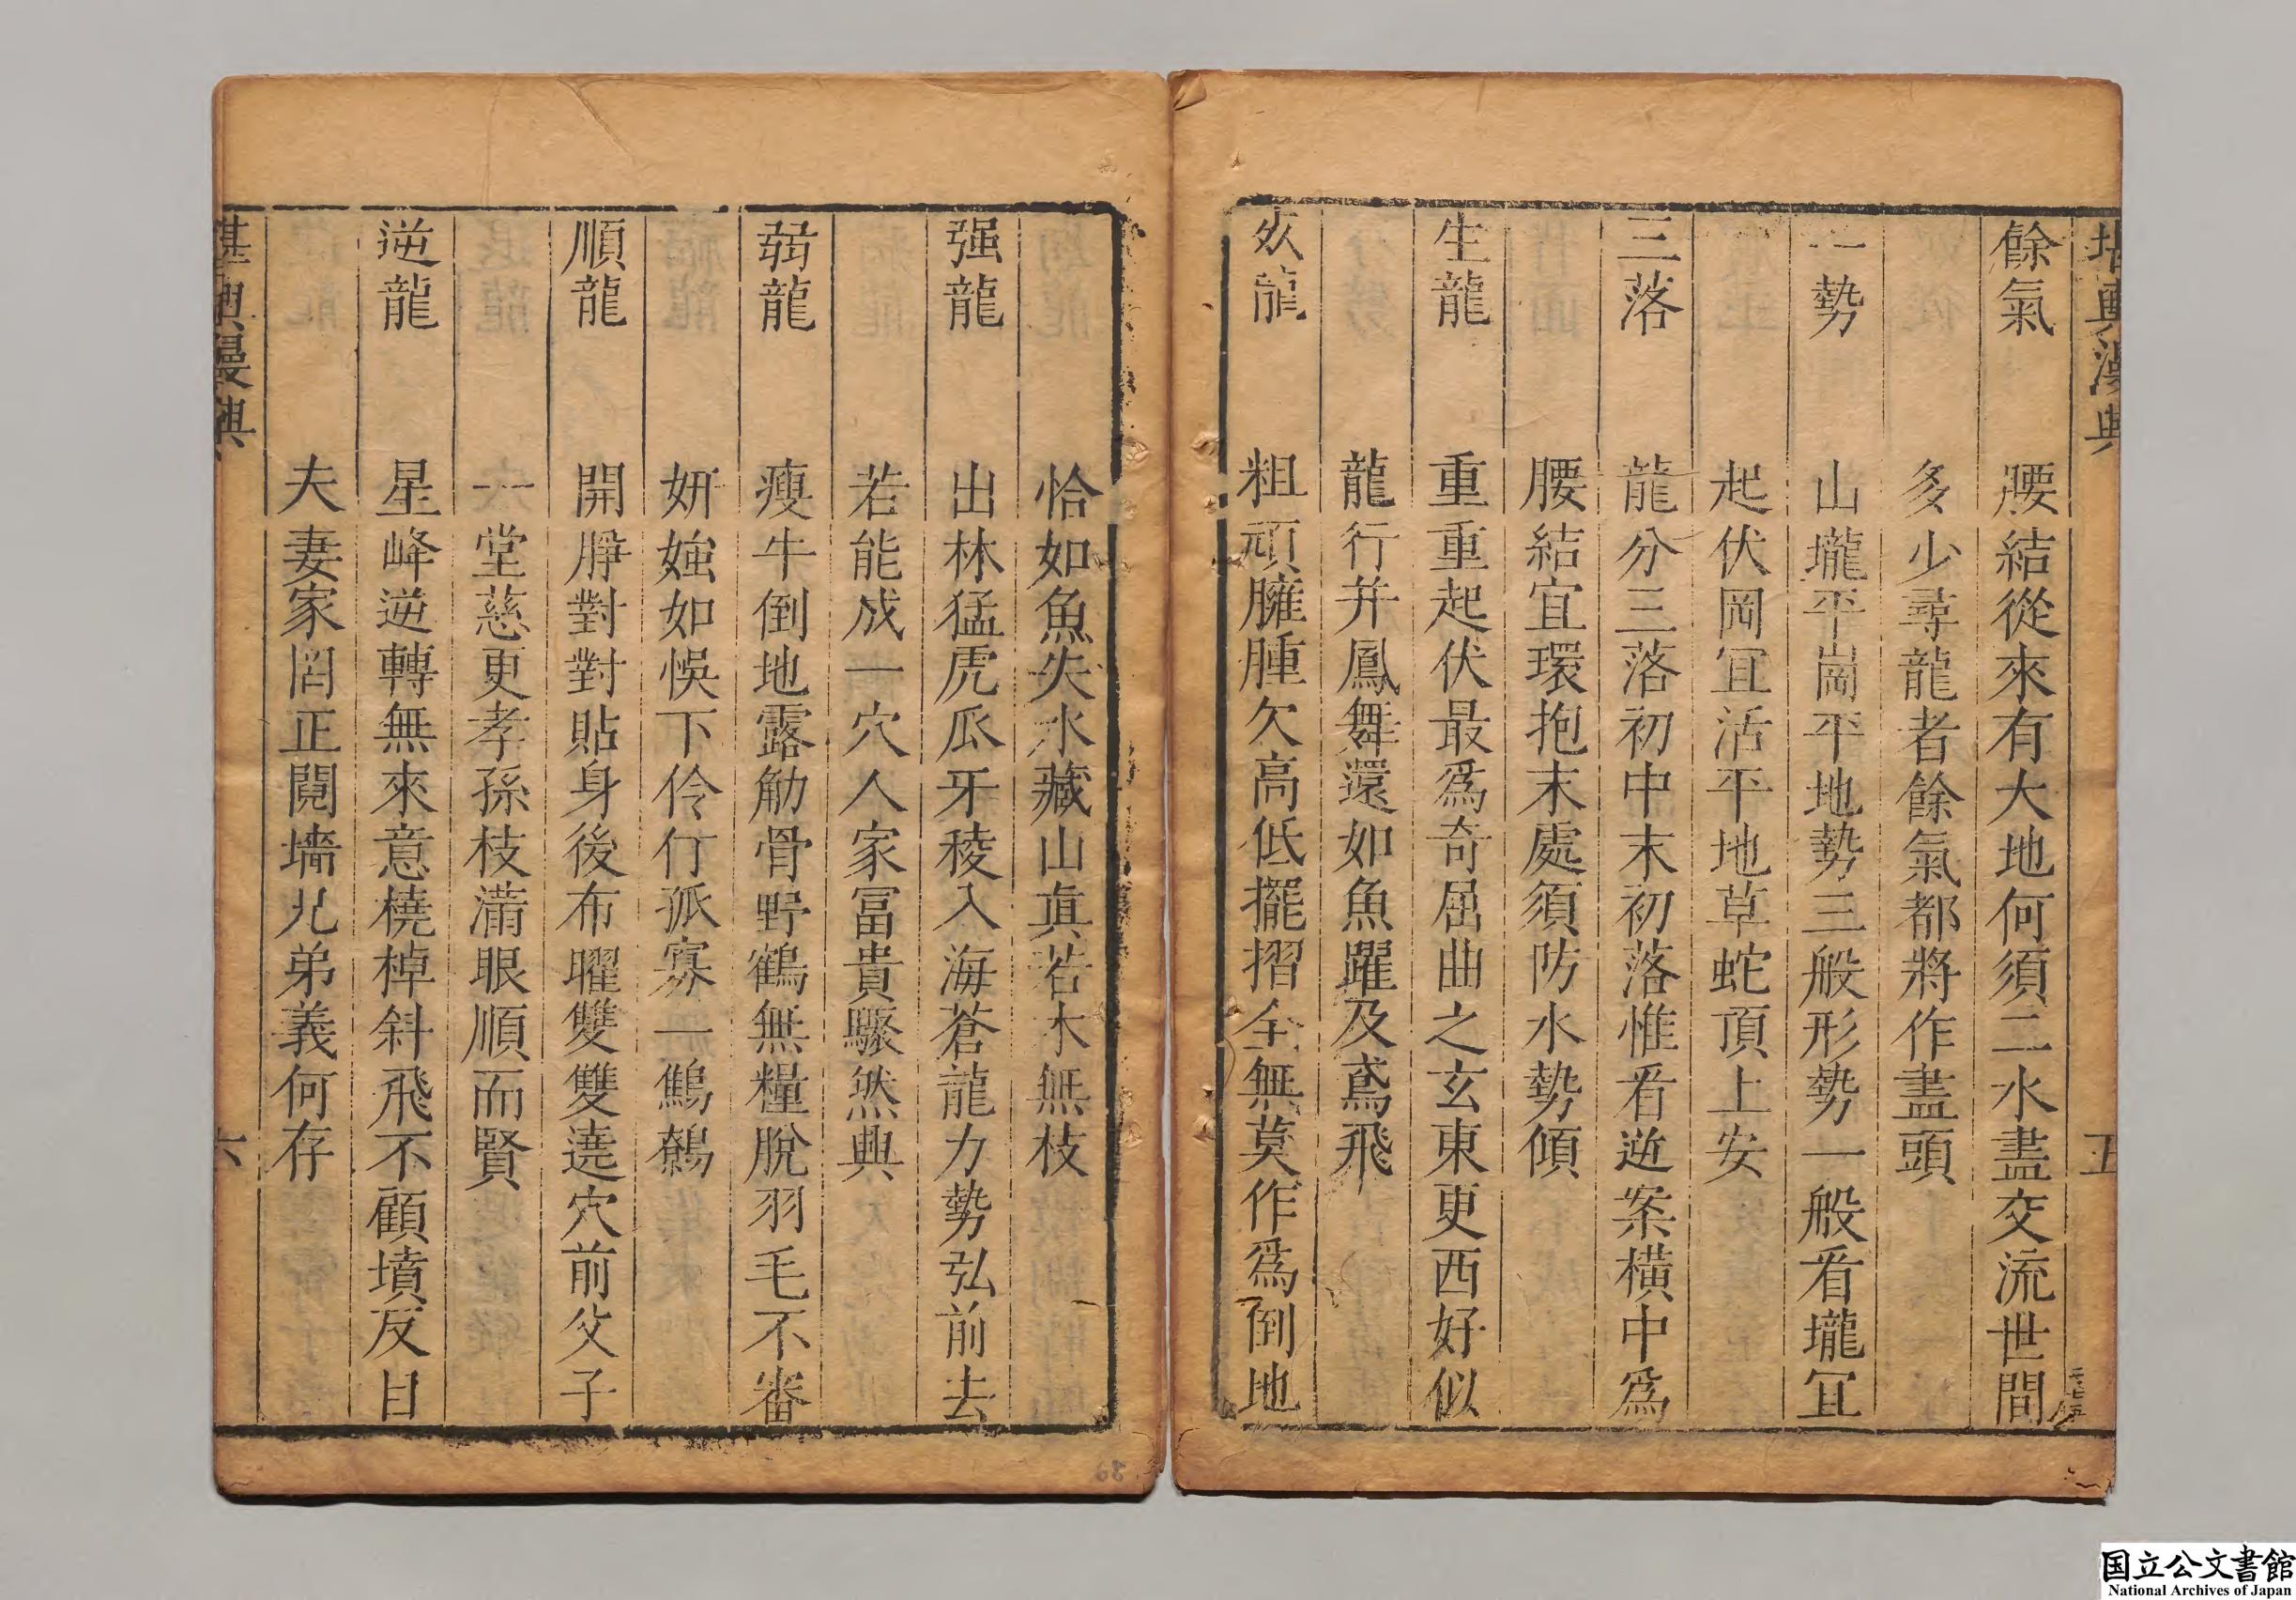 堪輿漫興
五
餘氣　腰結從來有大地何須二水盡交流世間
多少尋龍者餘氣都將作盡頭
勢　山壠平崗平地勢三般形勢一般看壠宜
起伏岡宜活平地草蛇頂上安
三落　龍分三落初中末初落惟看逆案橫中爲
腰結宜環抱末處須防水勢傾
生龍　重重起伏最爲奇屈曲之玄東更西好似
龍行并鳳舞還如魚躍及鳶飛
龍　粗頑臃腫欠高低擺摺全無莫作爲倒地
恰如魚失水藏山真若木無枝
强龍　出林猛虎瓜牙稜入海蒼龍力勢弘前去
若能成一穴人家冨貴驟然興
弱龍　瘦牛倒地露觔骨野鶴無糧脫羽毛不審
妍媸如悞下伶仃孤寡一鷦鷯
順龍　開睜對對貼身後布曜雙雙遶穴前父子
一堂慈更孝孫枝滿眼順而賢
逆龍　星峰逆轉無來意橈棹斜飛不顧墳反目
夫妻家罔正鬩墻兄弟義何存
堪輿漫興
六
国立公文書館
National Archives of Japan